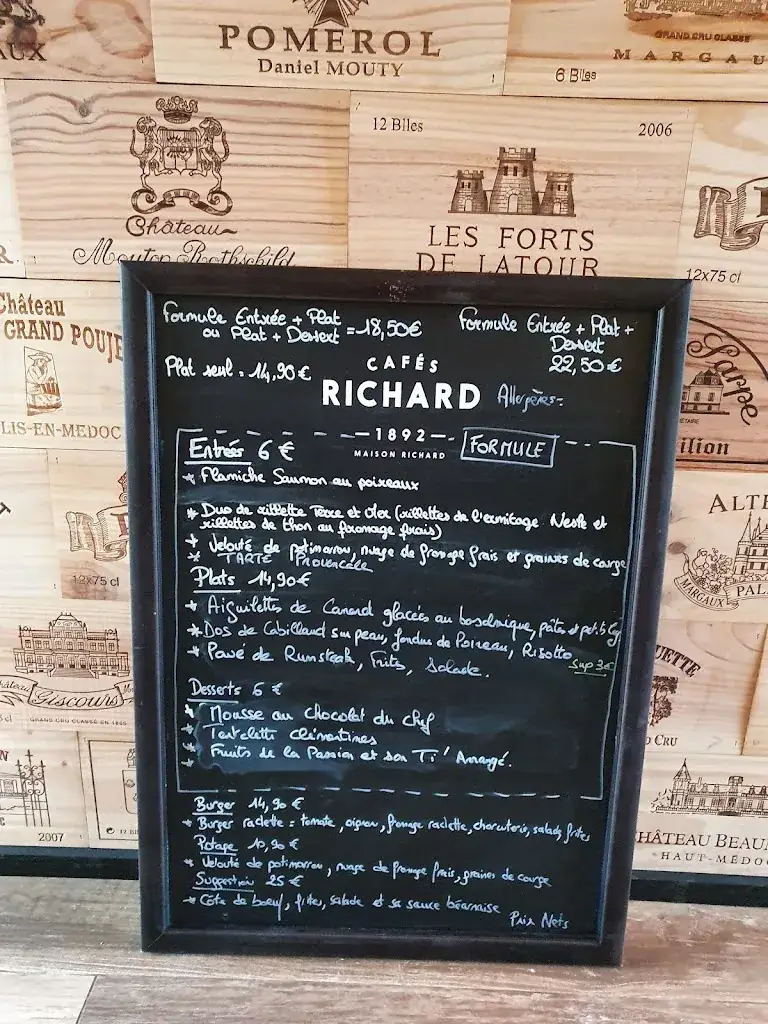 AUX
POMEROL
Daniel MOUTY
GRAND CRU CLASSÉ
MARGAU
6 Blles
Château
Mouton Rothschild
12 Blles
2006
LES FORTS
DE LATOUR
R.
12x75 cl
Château
GRAND POUJE
LIS-EN-MEDOC
Larpe
ilion
12x75 cl
ALTE
MARGAUX
PAL
Château
Giscours
GRAND CRU CLASSÉ EN 1855
UETTE
D CRU
2007
12 B
CHÂTEAU BEAU
HAUT-MÉDOC
Formule Entrée + Plat
ou Plat + Dessert = 18,50€
Formule Entrée + Plat +
Dessert
22,50 €
Plat seul = 14,90€
CAFÉS
RICHARD
1892
MAISON RICHARD
FORMULE
Entrées 6 €
* Flamiche Saumon au poireaux
* Duo de rillette Terre et Mer (rillettes de l'ermitage Nesle et
rillettes de thon au fromage frais)
* Velouté de potimarron, nuage de fromage frais et graines de courge
* TARTE Provencale
Plats 14,90€
* Aiguillettes de Canard glacées au balsamique, pâtes et petits lég
* Dos de Cabillaud sur peau, fondue de Poireau, Risotto
* Pavé de Rumsteak, Frites, Salade.
Sup 3€
Desserts 6 €
* Mousse au Chocolat du chef
* Tartelette clémentines
* Fruits de la Passion et son Ti' Arrangé.
Burger 14,90 €
* Burger raclette = tomate, oignon, fromage raclette, charcuterie, salade, frites
Potage 10,90 €
* Velouté de potimarron, nuage de fromage frais, graines de courge
Suggestion 25 €
* Côte de boeuf, frites, salade et sa sauce béarnaise
Prix Nets